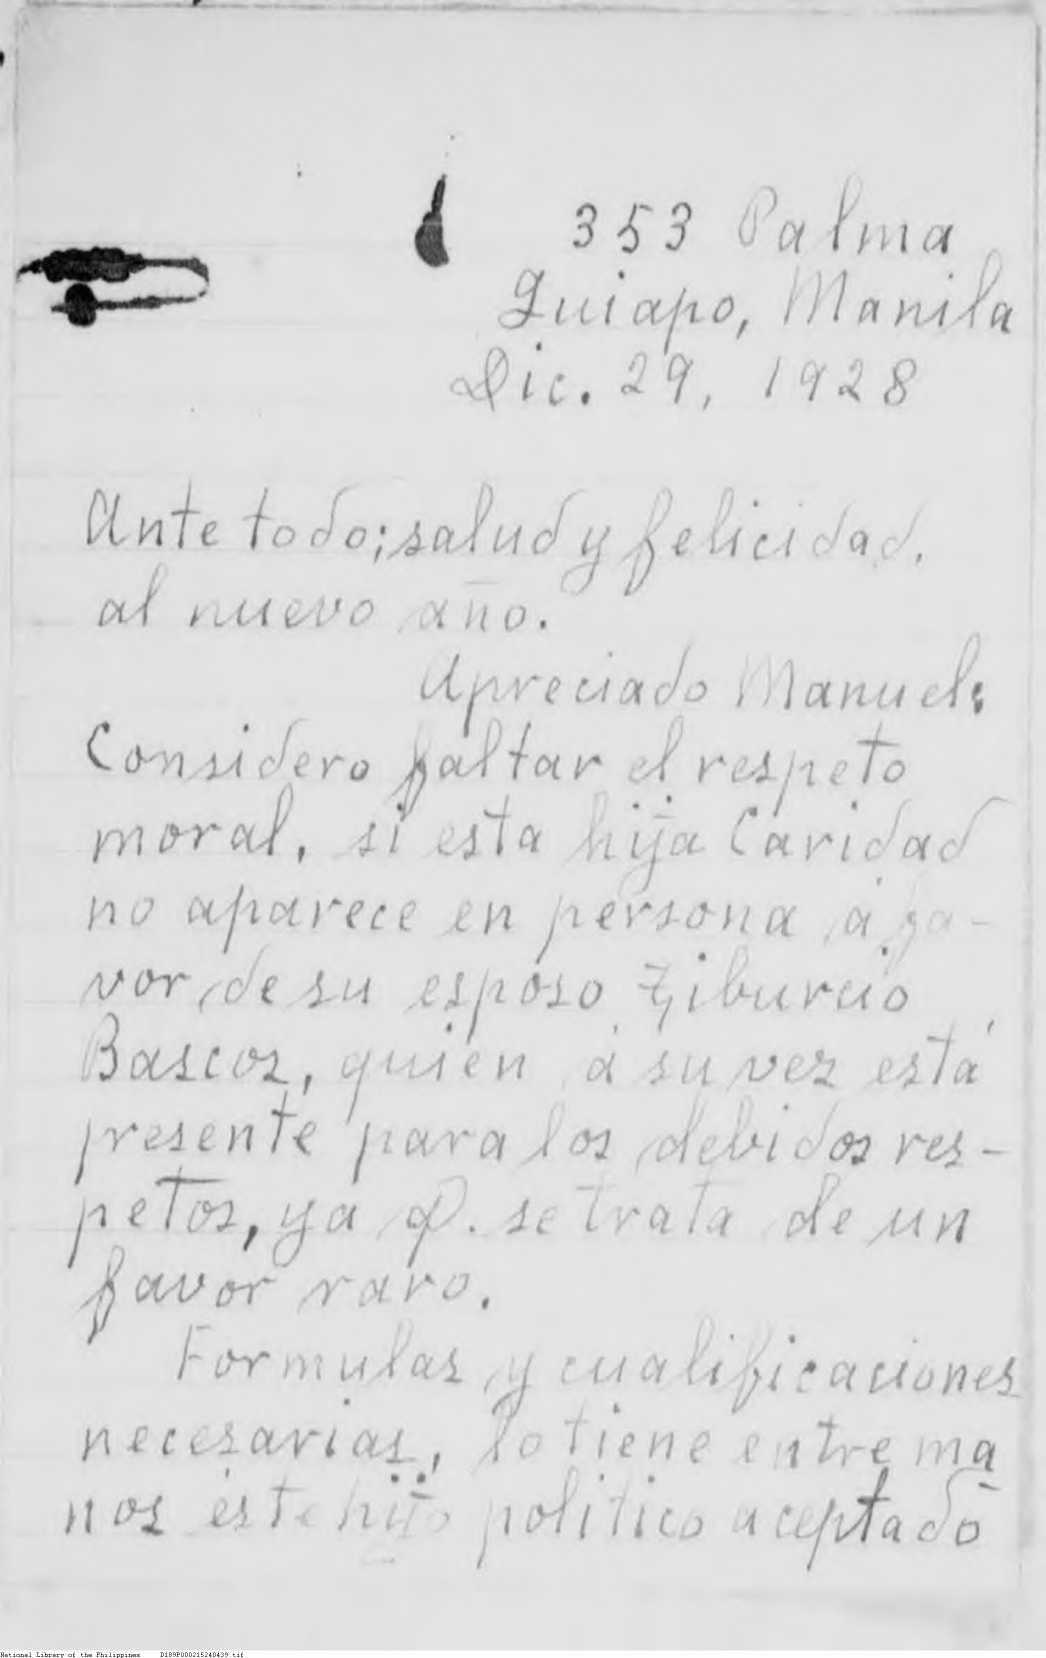 353 Palma
Quiapo, Manila
Dic. 29, 1928
Ante todo; salud y felicidad,
al nuevo año.
Apreciado Manuel:
Considero faltar el respeto
moral, si esta hija Caridad
no aparece en persona á fa-
vor de su esposo Tiburcio
Bascos, quien á su vez está
presente para los debidos res-
petos, ya q. se trata de un
favor raro.
Formulas y cualificaciones
necesarias, lo tiene entre ma
nos este hijo politico aceptado
National Library of the Philippines D189P000215240439.tif